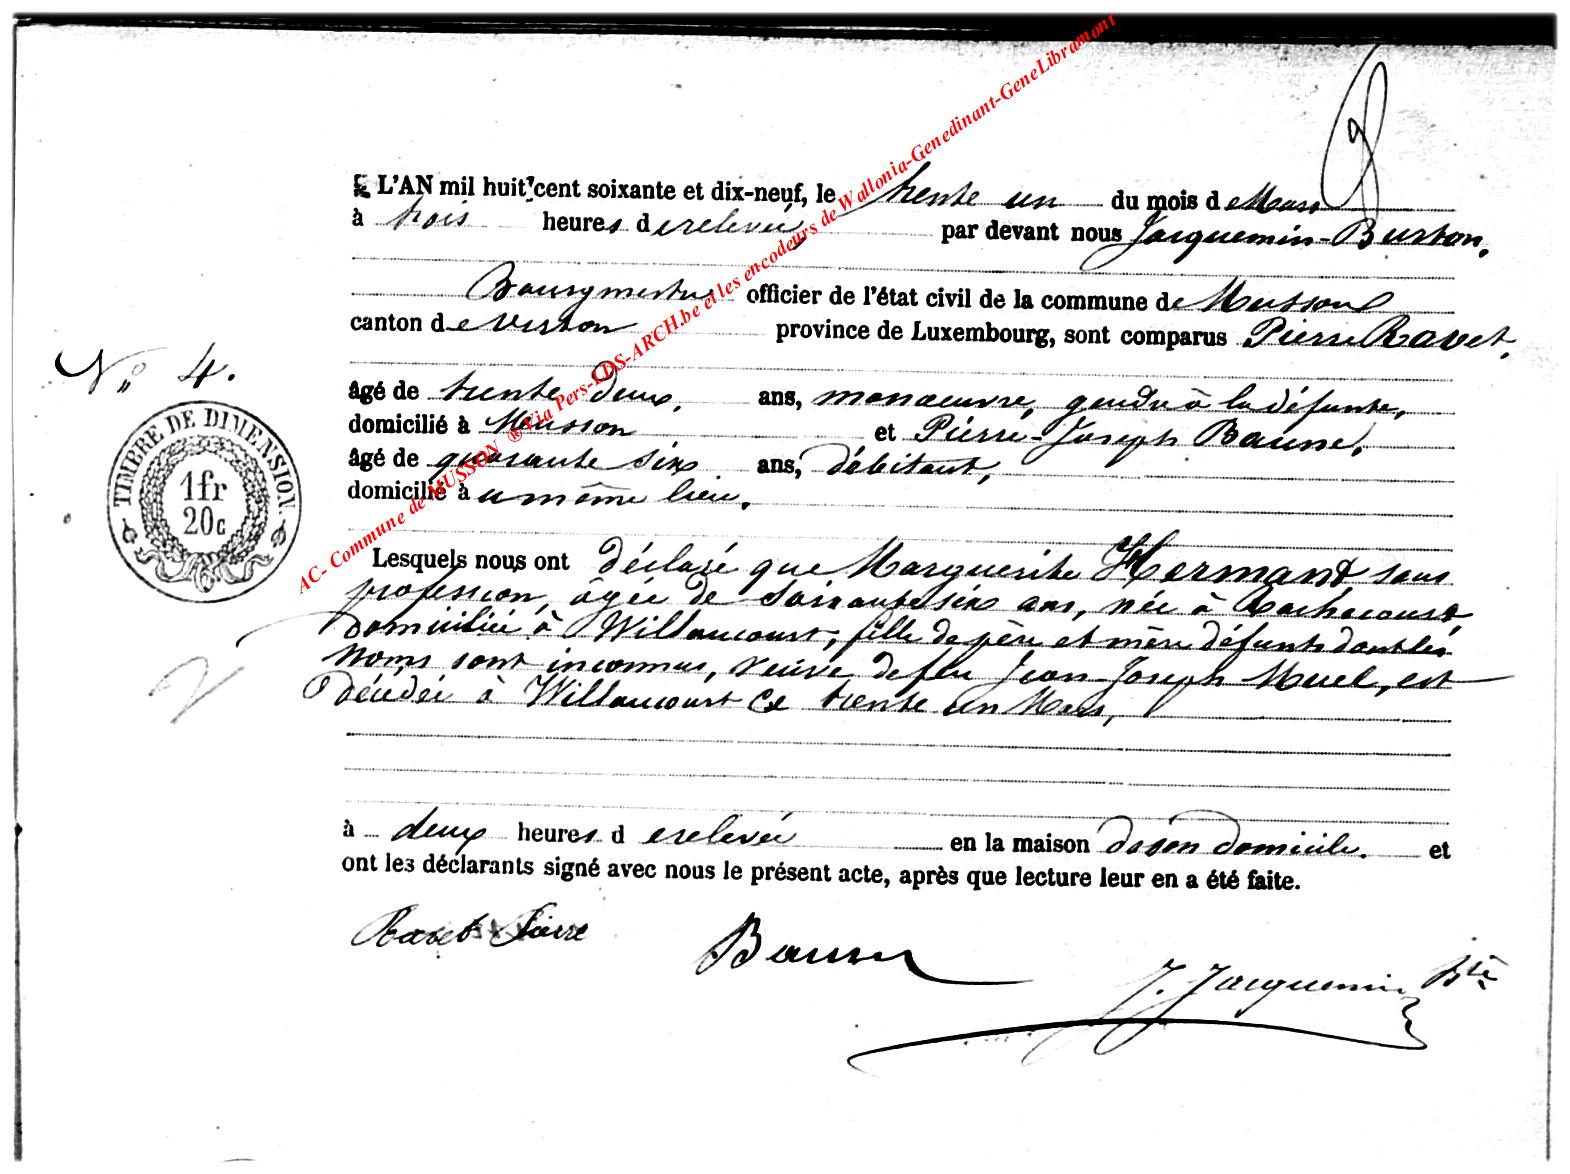 L'AN mil huit cent soixante et dix-neuf, le trente un du mois de Mars
à trois heures de relevée par devant nous Jacquemin-Burton,
Bourgmestre officier de l'état civil de la commune de Musson
canton de Virton province de Luxembourg, sont comparus Pierre Ravet,
N° 4.
âgé de trente deux, ans, manoeuvre, gendre à la défunte,
domicilié à Musson et Pierre-Joseph Baune,
âgé de quarante six ans, débitant,
domicilié à u même lieu,
TIMBRE DE DIMENSION
1fr
20c
Lesquels nous ont déclaré que Marguerite Hermant sans
profession, âgée de soixante six ans, née à Rachecourt
domiciliée à Willancourt, fille de père et mère défunts dont les
noms sont inconnus, veuve de feu Jean-Joseph Muel, est
décédée à Willancourt ce trente un Mars,
à deux heures de relevée en la maison de son domicile. et
ont les déclarants signé avec nous le présent acte, après que lecture leur en a été faite.
Ravet Pierre
Baune
J. Jacquemin Btn
AC- Commune de MUSSON ®Via Pers-LDS-ARCH.be et les encodeurs de Wallonia-Genedinant-GeneLibramont